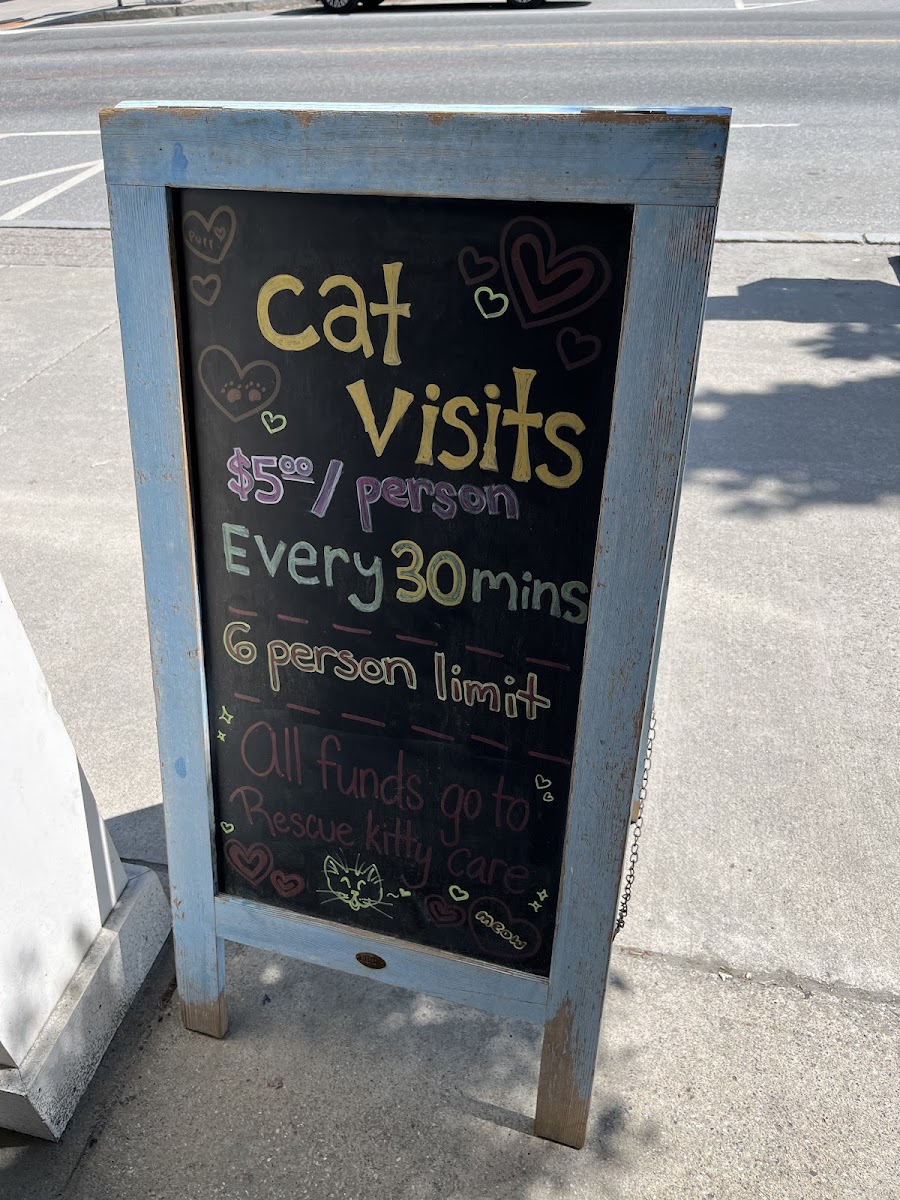 purr
cat
visits
$5.00/person
Every 30 mins
6 person limit
All funds go to
Rescue kitty care
meow